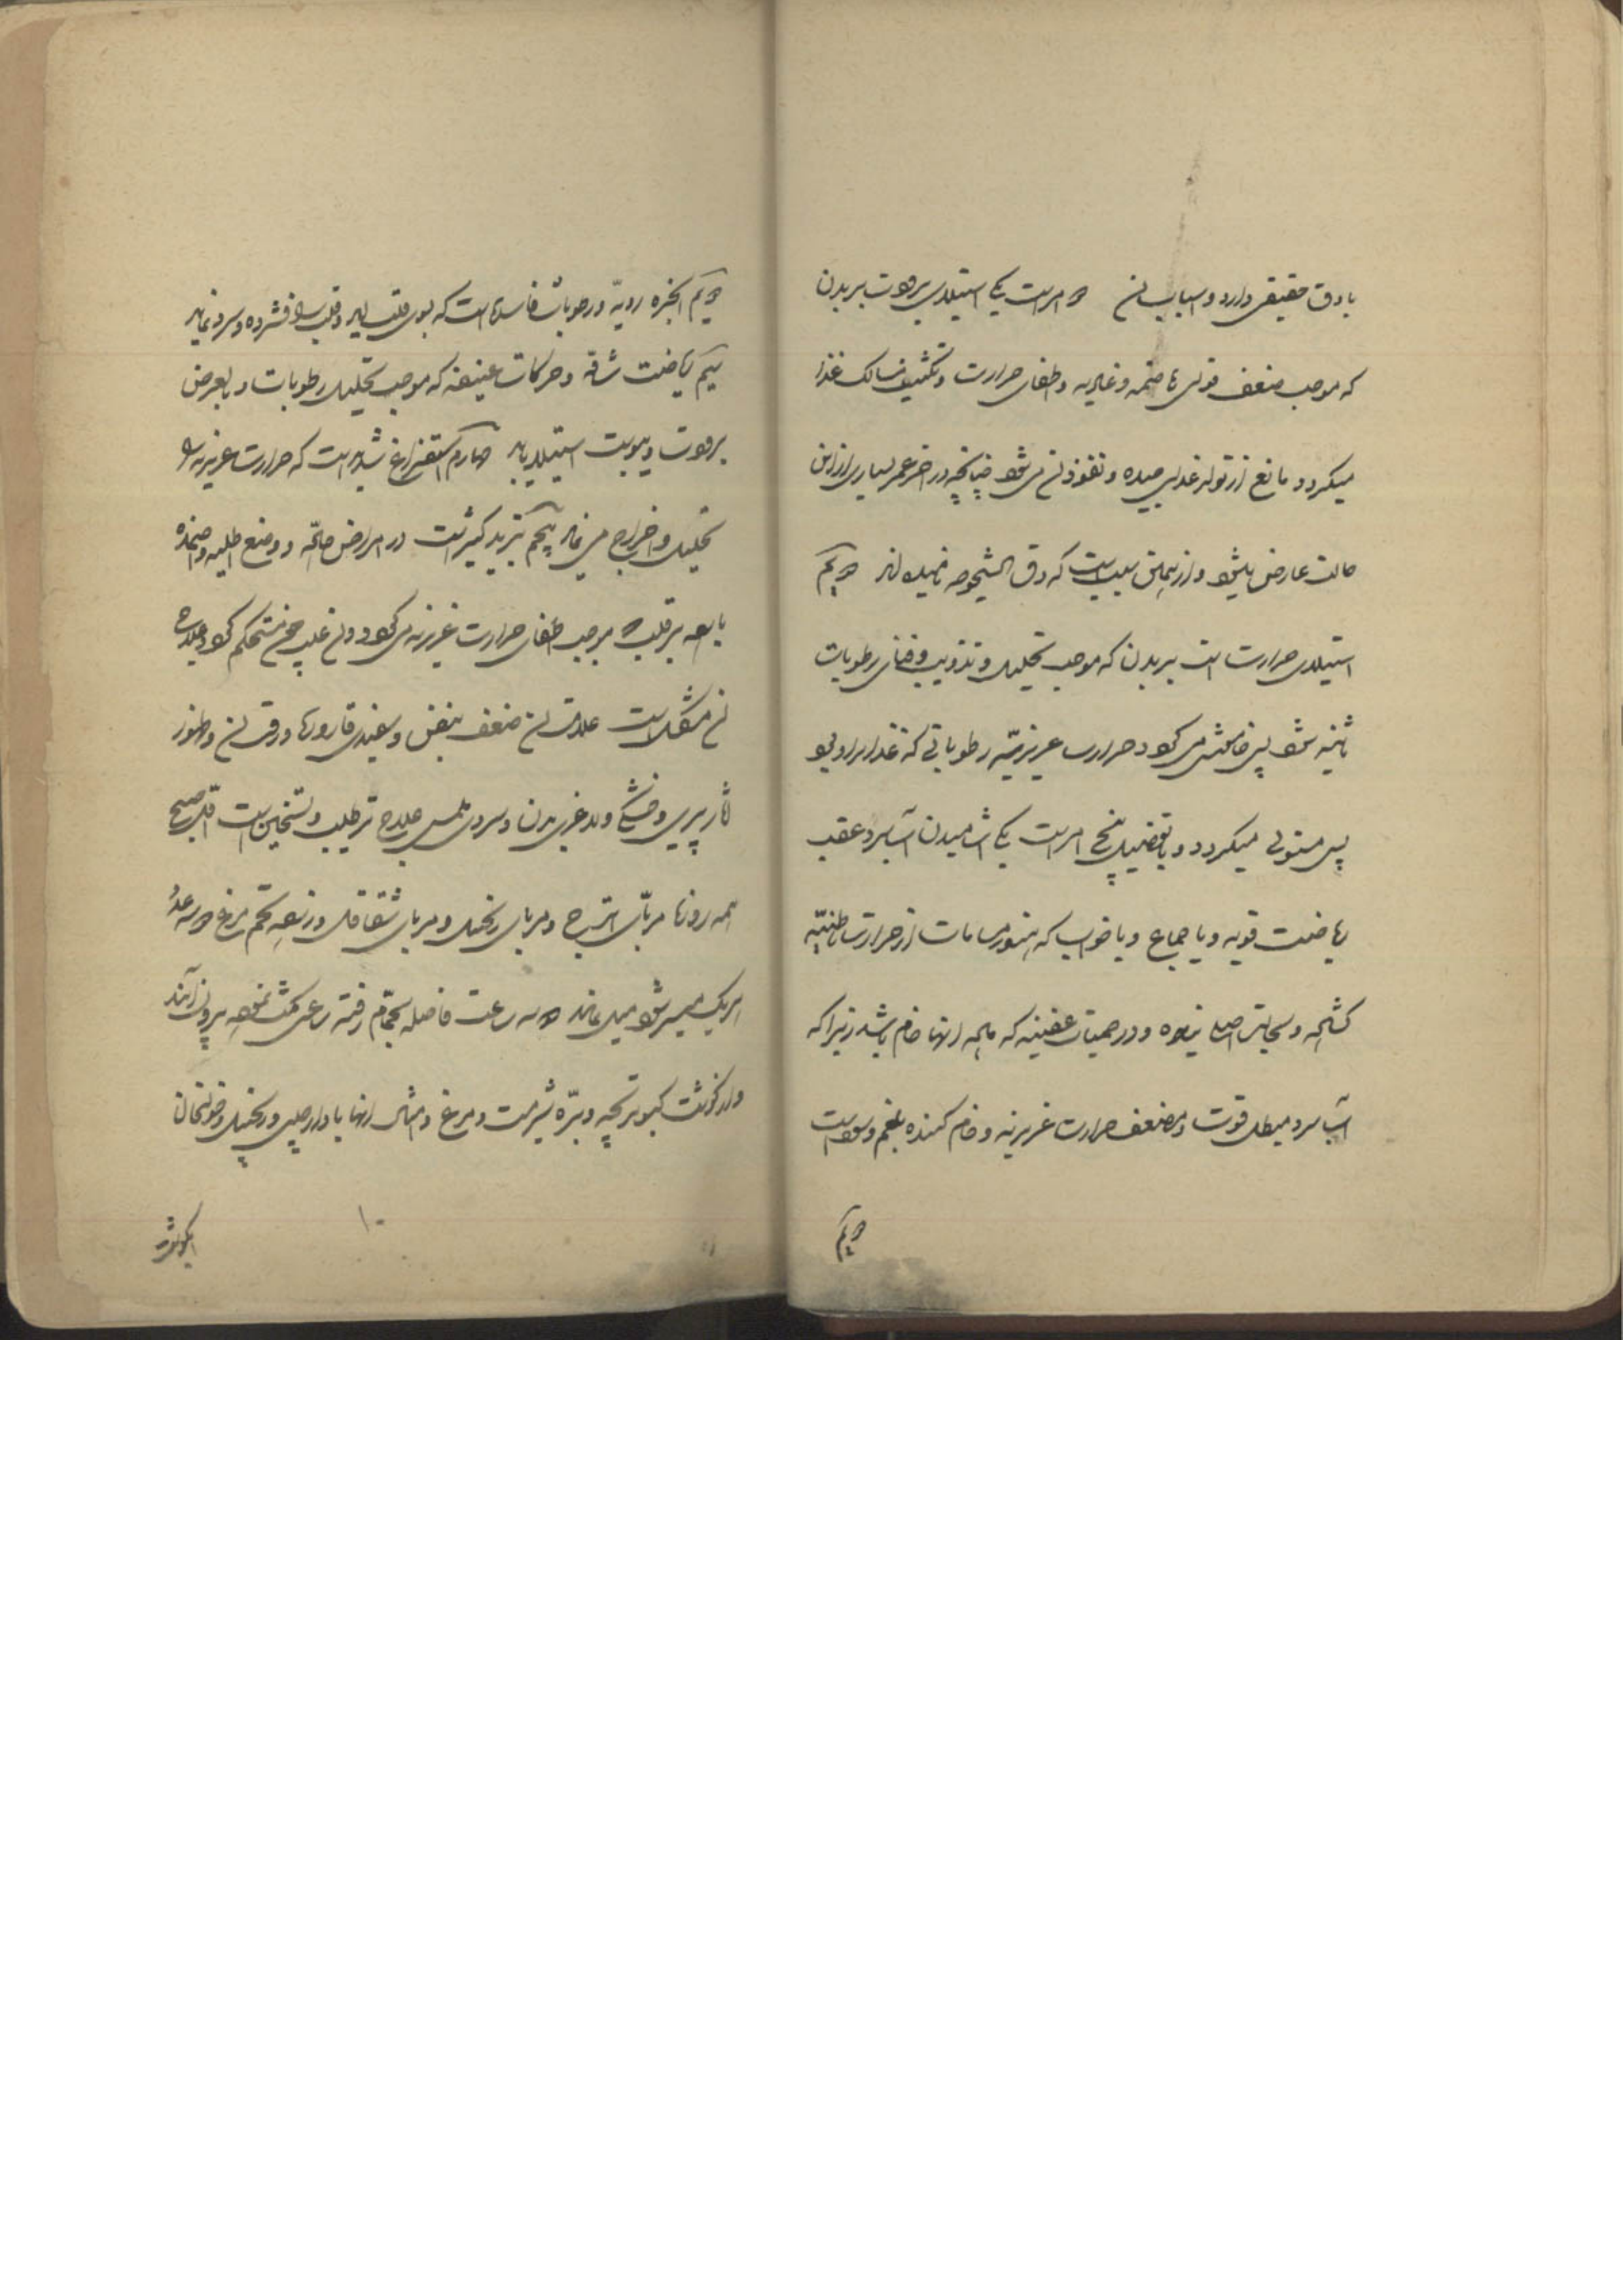 با دق حقیقی دارد و اسباب آن دو امر است یکی استیلای برودت بر بدن
که موجب ضعف قوای هاضمه و غاذیه و اطفای حرارت و تکثیف مسالک غذا
میگردد و مانع از تولد غذای جیده و نفوذ آن می‌شود چنانچه در آخر عمر بسیاری را از این
حالت عارض میشود و از همین سبب است که دق الشیخوخه نامیده‌اند دویم
استیلای حرارت است بر بدن که موجب تحلیل و تذویب و فنای رطوبات
ثانیه شود پس خامش می‌گردد حرارت غریزیه رطوباتی که غذا برای او بود
پس مستولی میگردد و بالتفصیل پنج امر است یکی آشامیدن آب سرد عقب
ریاضت قویه و یا جماع و یا خواب که هنوز مسامات از حرارت باطنیه
گشاده و بحالت اصلی نیامده و در حمیات عفنیه که ماده آنها خام باشد زیرا که
آب سرد مبطل قوت و مضعف حرارت غریزیه و خام کننده بلغم و سودا است
دویم
دویم ابخره ردیه و رطوبات فاسده است که بسوی قلب آید و قلب را فشرده و سرد نماید
سیم ریاضت شاقه و حرکات عنیفه که موجب تحلیل رطوبات و بالعرض
برودت و یبوست استیلا یابد چهارم استفراغ شدید است که حرارت غریزیه را
تحلیل و اخراج می نماید پنجم تبرید کثیر است در امراض حاده و وضع اطلیه و اضمده
بارده بر قلب و موجب اطفای حرارت غریزیه می‌گردد و آن غالب چون مستحکم گردد علاج
آن مشکل است علامت آن ضعف نبض و سفیدی قاروره و رقت آن و ظهور
آثار پیری و خشکی و لاغری بدن و سردی ملمس علاج ترطیب و تسخین است اول صبح
همه روزه مربای اترج و مربای زنجبیل و مربای شقاقل و زرده تخم مرغ دو سه عدد
هر یک میسر شود میل نماید دو سه ساعت فاصله بحمام رفته ساعتی مکث نموده بیرون آیند
و از گوشت کبوتر بچه و بره شیرمست و مرغ و امثال آنها با دارچینی و زنجبیل و خولنجان
۱۰